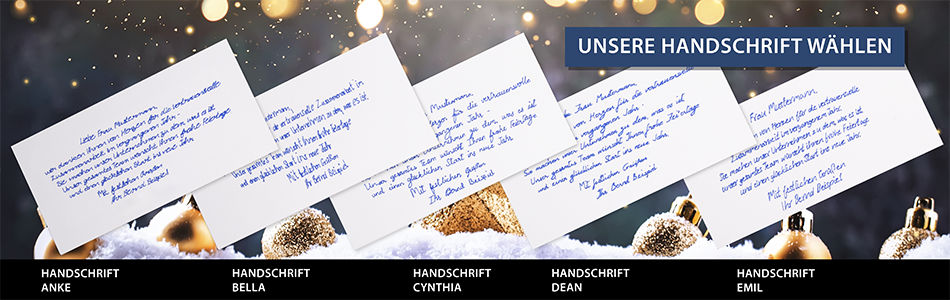 UNSERE HANDSCHRIFT WÄHLEN
Liebe Frau Mustermann,
wir danken Ihnen von Herzen für die vertrauensvolle
Zusammenarbeit im vergangenen Jahr.
Sie machen unser Unternehmen zu dem, was es ist.
Unser gesamtes Team wünscht Ihnen frohe Feiertage
und einen glücklichen Start ins neue Jahr.
Mit festlichen Grüßen
Ihr Bernd Beispiel
Zusammenarbeit im
zu dem, was es ist.
Unser gesamtes Team wünscht Ihnen frohe Feiertage
und einen glücklichen Start ins neue Jahr.
Mit festlichen Grüßen
Ihr Bernd Beispiel
Mustermann,
Herzen für die vertrauensvolle
vergangenen Jahr.
zu dem, was es ist.
Team wünscht Ihnen frohe Feiertage
und einen glücklichen Start ins neue Jahr.
Mit festlichen Grüßen
Ihr Bernd Beispiel
Frau Mustermann,
von Herzen für die vertrauensvolle
vergangenen Jahr.
unser Unternehmen zu dem, was es ist.
gesamtes Team wünscht Ihnen frohe Feiertage
und einen glücklichen Start ins neue Jahr.
Mit festlichen Grüßen
Ihr Bernd Beispiel
Frau Mustermann,
von Herzen für die vertrauensvolle
Zusammenarbeit im vergangenen Jahr.
Sie machen unser Unternehmen zu dem, was es ist.
Unser gesamtes Team wünscht Ihnen frohe Feiertage
und einen glücklichen Start ins neue Jahr.
Mit festlichen Grüßen
Ihr Bernd Beispiel
HANDSCHRIFT
ANKE
HANDSCHRIFT
BELLA
HANDSCHRIFT
CYNTHIA
HANDSCHRIFT
DEAN
HANDSCHRIFT
EMIL